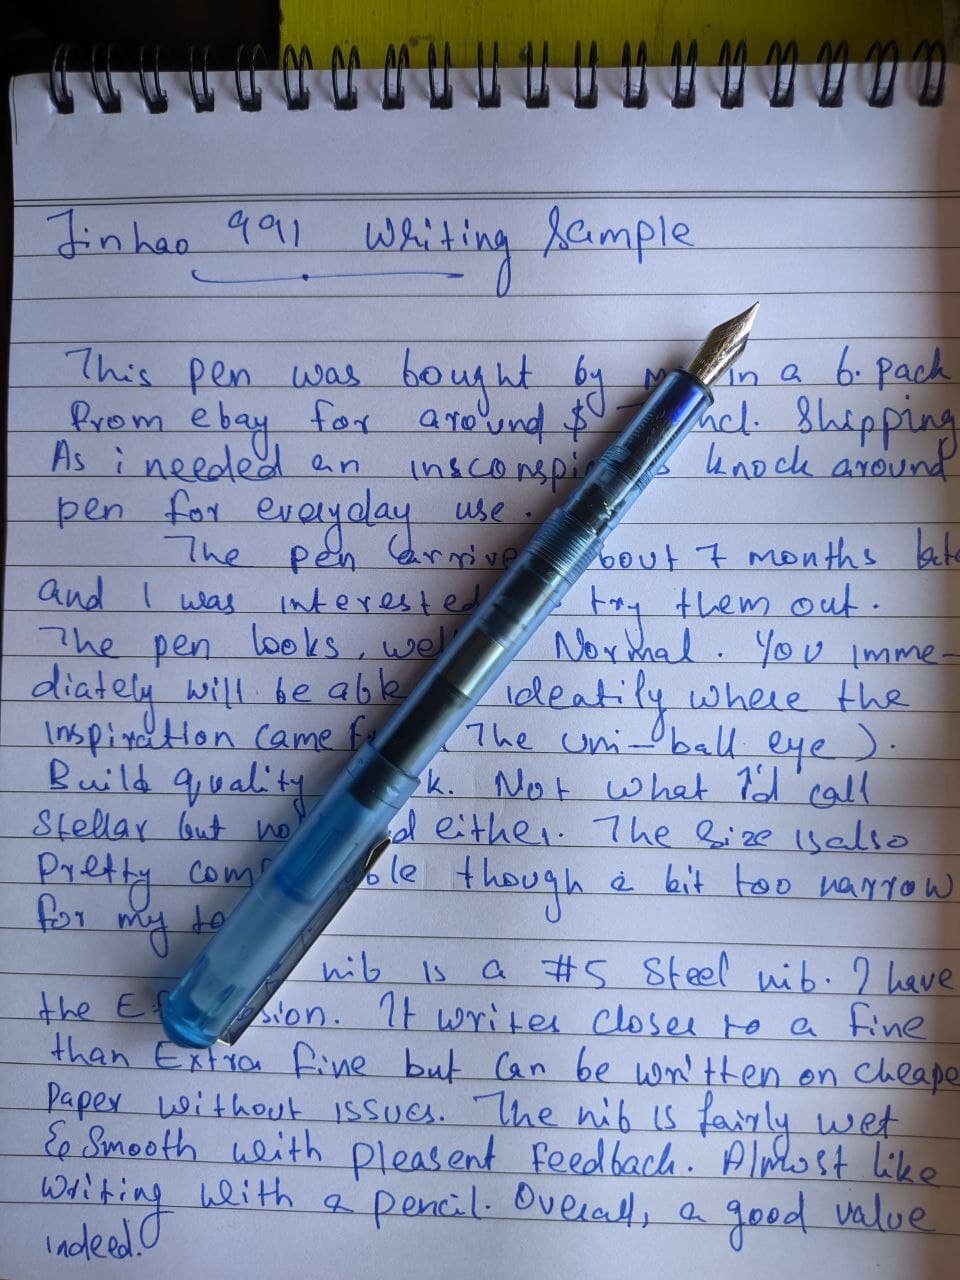 Jinhao 991 Writing Sample
This pen was bought by in a 6. pack
from ebay for around $ incl. Shipping
As i needed an knock around
pen for everyday use.
The pen bout 7 months
and I was interested try them out.
The pen looks, Normal. You imme-
diately will be able where the
inspiration came The uni-ball eye).
Build quality k. Not what I'd call
Stellar but either. The Size is also
Pretty ble though a bit too narrow
for my
nib is a #5 Steel nib. I have
the sion. It writes closer to a fine
than Extra fine but can be written on cheape
Paper without issues. The nib is fairly wet
& Smooth with pleasent feedback. Almost like
writing with a pencil. Overall, a good value
indeed.